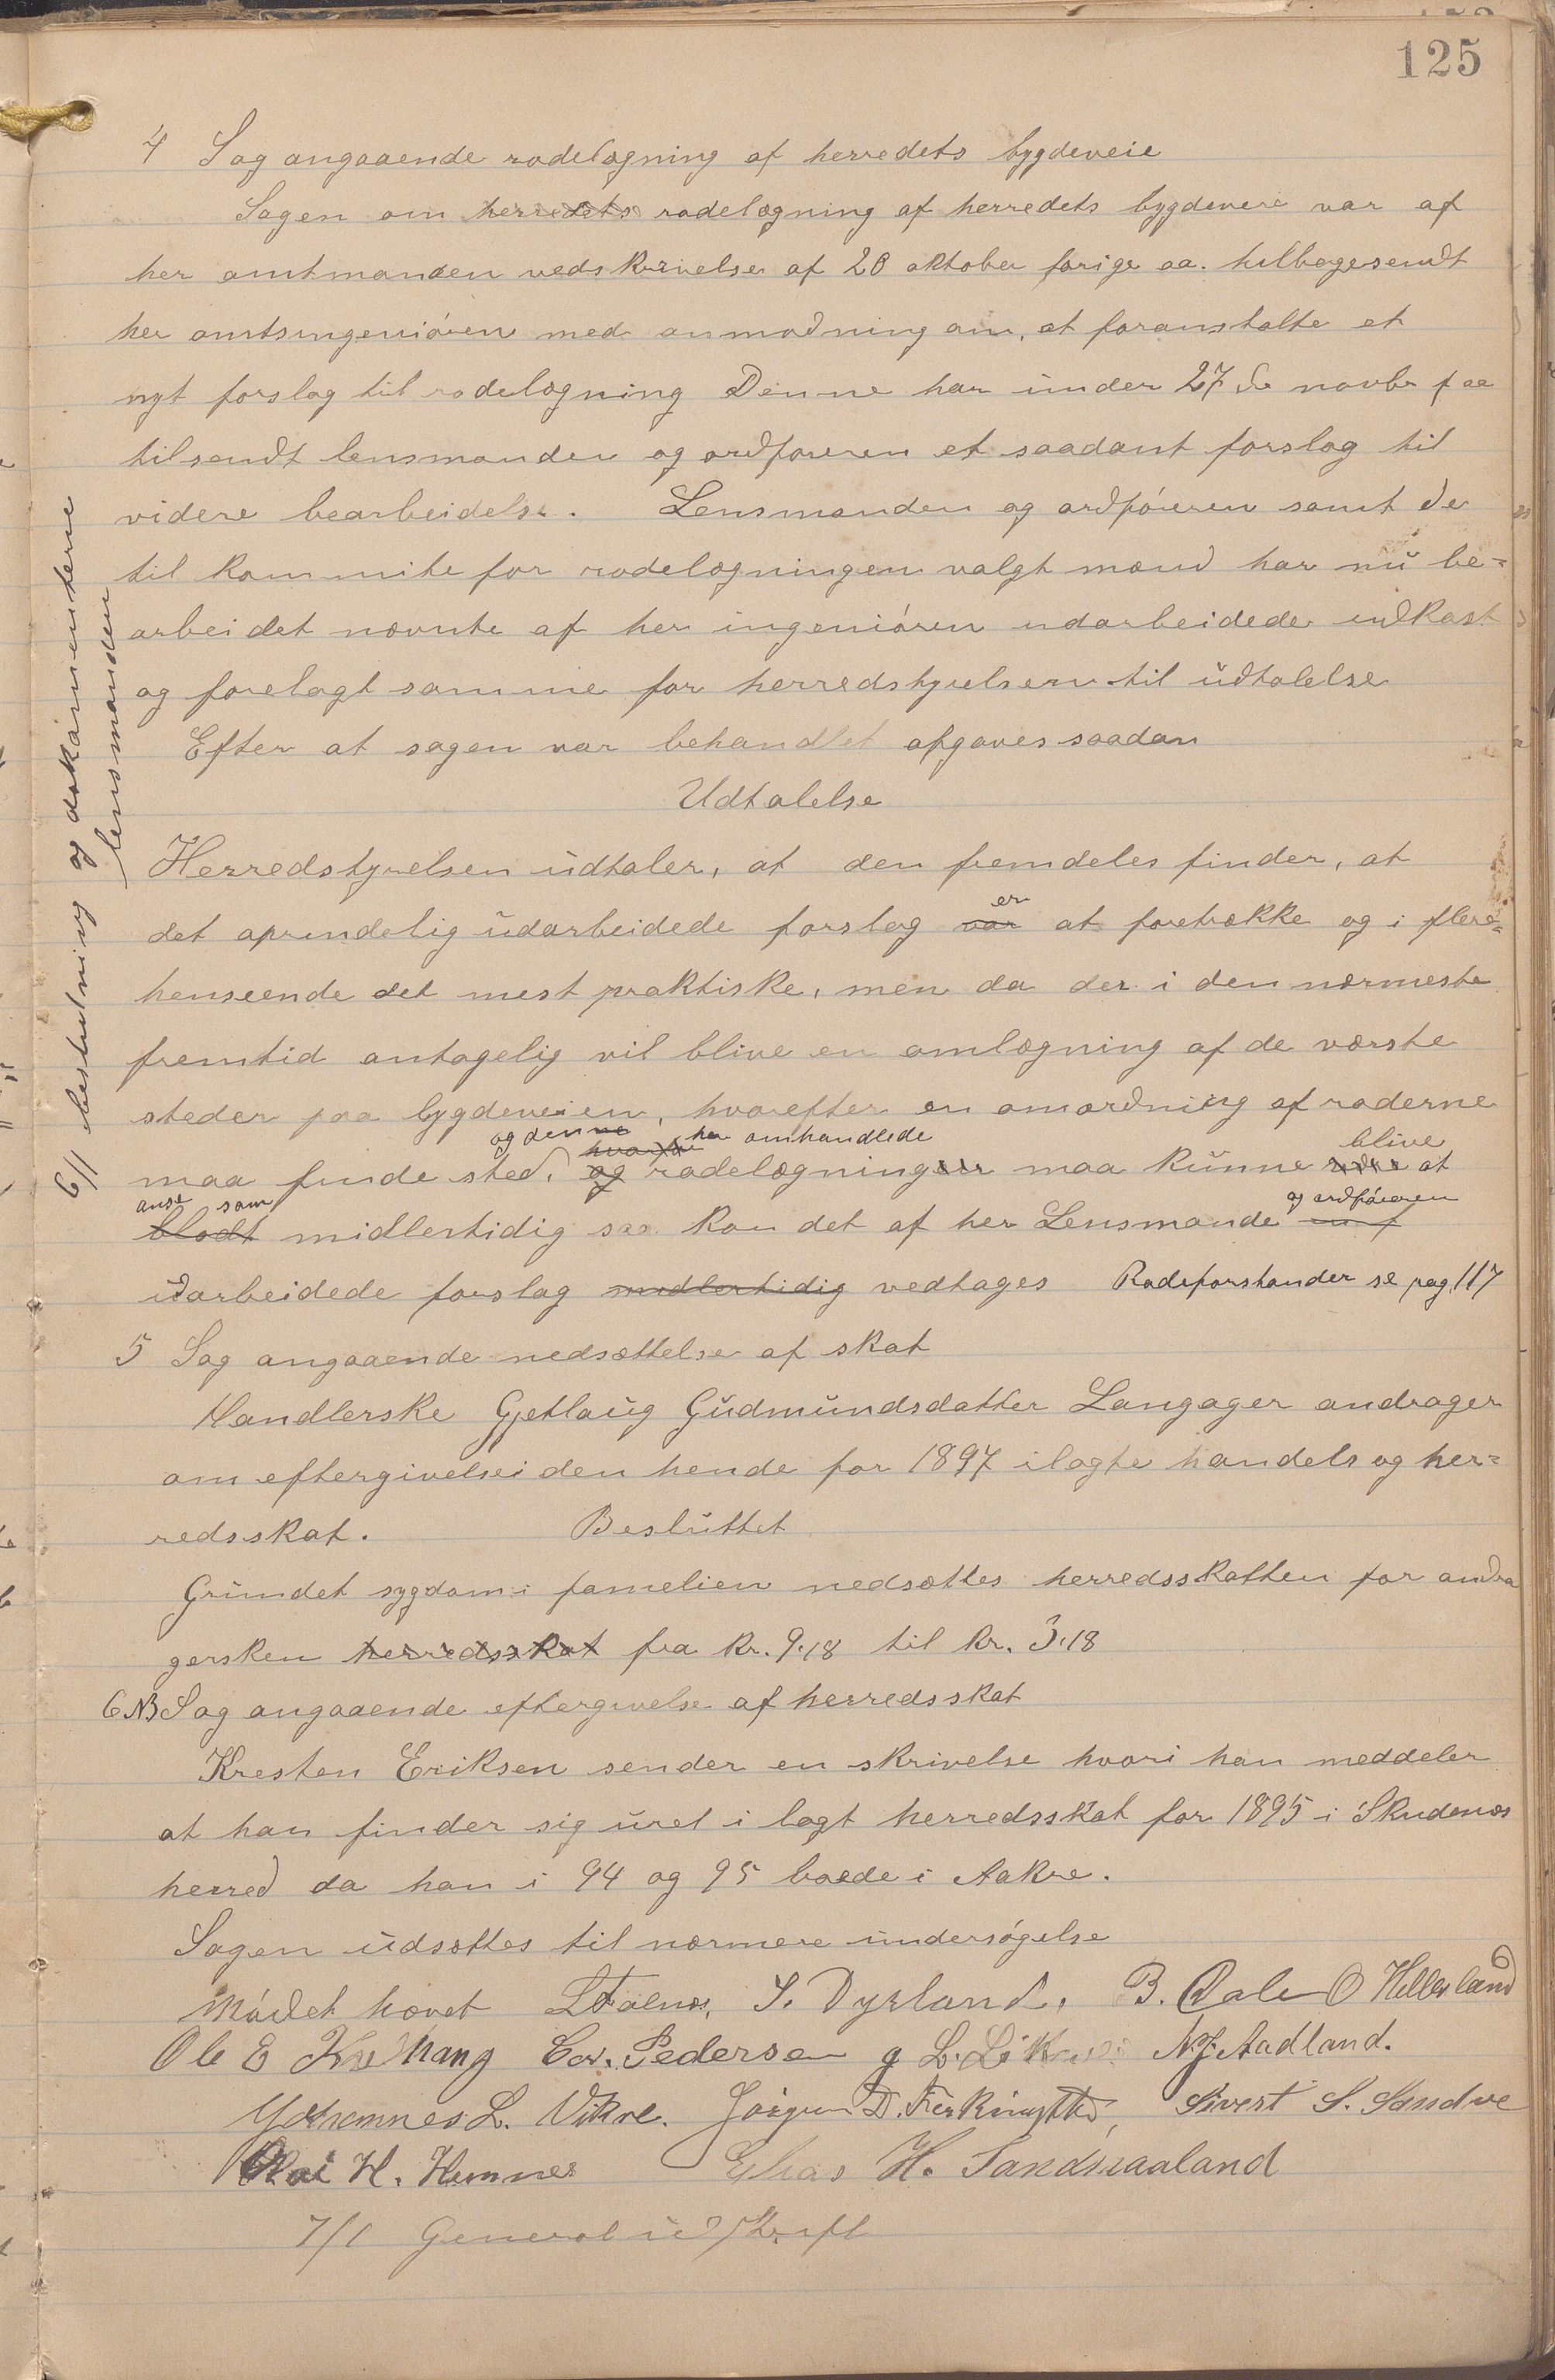 125
4 Sag angaaende rodelægning af herredets bygdeveie
Sagen om herredets rodelægning af herredets bygdeveie var af
her amtmanden vedskrivelse af 20 oktober forige aa. tilbagesendt
her amtsingeniøren med anmodning om, at foranstalte et
nyt forslag til rodelægning Denne har under 27de novbr f aa
tilsendt lensmanden og ordføreren et saadant forslag til
videre bearbeidelse. Lensmanden og ordføreren samt de
til kommite for rodelægningen valgt mænd har nu be-
arbeidet nævnte af her ingeniøren udarbeidede udkast
og forelagt samme for herredstyrelsen til udtalelse
Efter at sagen var behandlet afgaves saadan
Udtalelse
Herredstyrelsen udtaler, at den fremdeles finder, at
det oprindelig udarbeidede forslag var er at foretrække og i flere
henseende det mest praktiske, men da der i den nærmeste
fremtid antagelig vil blive en omlægning af de værste
steder paa bygdeveien, hvorefter en omordning af roderne
og denne her omhandlede blive
maa finde sted, og rodelægningen maa kunne at
anse som og ordføreren
blodt midlertidig saa kan det af her Lensmande
udarbeidede forslag midlertidig vedtages Rodeforstander se pag. 117
6/1 beslutning og dokumenterne
lensmanden
5 Sag angaaende nedsættelse af skat
Handlerske Gjetlaug Gudmundsdatter Langager andrager
om eftergivelse i den hende for 1897 ilagte handels og her-
redsskat. Besluttet
Grundet sygdom i famelien nedsættes herredsskatten for andra
gersken herredsskat fra kr. 9.18 til kr. 3.18
6 NB Sag angaaende eftergivelse af herredsskat
Kresten Eriksen sender en skrivelse hvori han meddeler
at han finder sig uret i lagt herredsskat for 1895 i Skudenæs
herred da han i 94 og 95 boede i Aakre.
Sagen udsættes til nærmere undersøgelse
Mødet hævet L Falnes, S. Dyrland, B. Dale O Hellesland
Ole E Kvilhaug Edv. Pedersen g L. Liknes N.J. Aadland.
Johannes L. Vikre. Jørgen D. Ferkingstad, Sivert S. Sandve
H. Hemnes Elias H. Sandsaaland
7/1 General udskrift